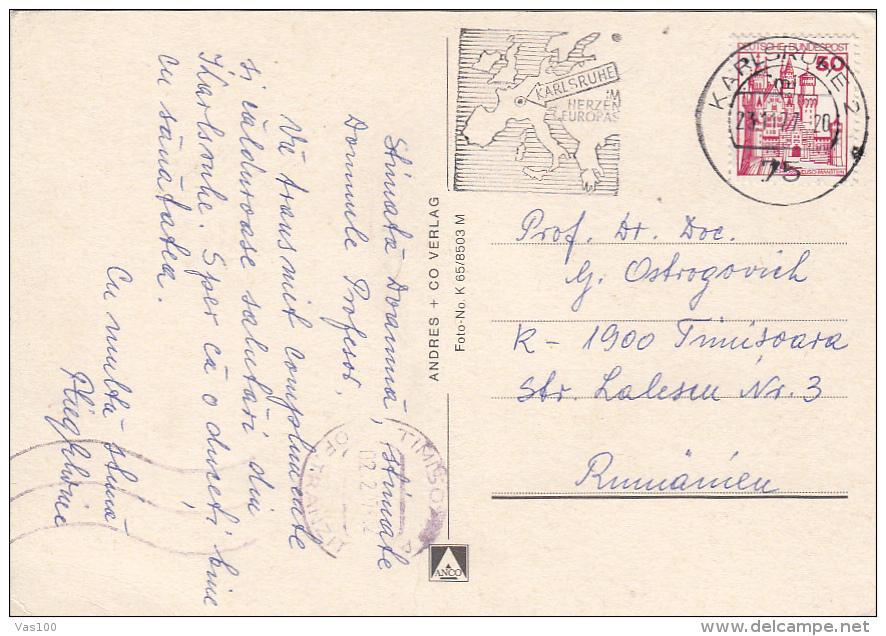 Stimată Doamnă, stimate
Domnule Profesor,
Vă transmit complimente
și călduroase salutări din
Karlsruhe. Sper că o duceți bine
cu sănătatea.
Cu multă stimă
ANDRES + CO VERLAG
Foto-No. K 65/8503 M
ANCO
KARLSRUHE
IM
HERZEN
EUROPAS
DEUTSCHE BUNDESPOST
60
KARLSRUHE 2
75
Prof. Dr. Doc.
G. Ostrogovich
R - 1900 Timișoara
Str. Lalescu Nr. 3
Rumänien
TIMISOARA
OF. TRANZIT
Vas100
www.delcampe.net